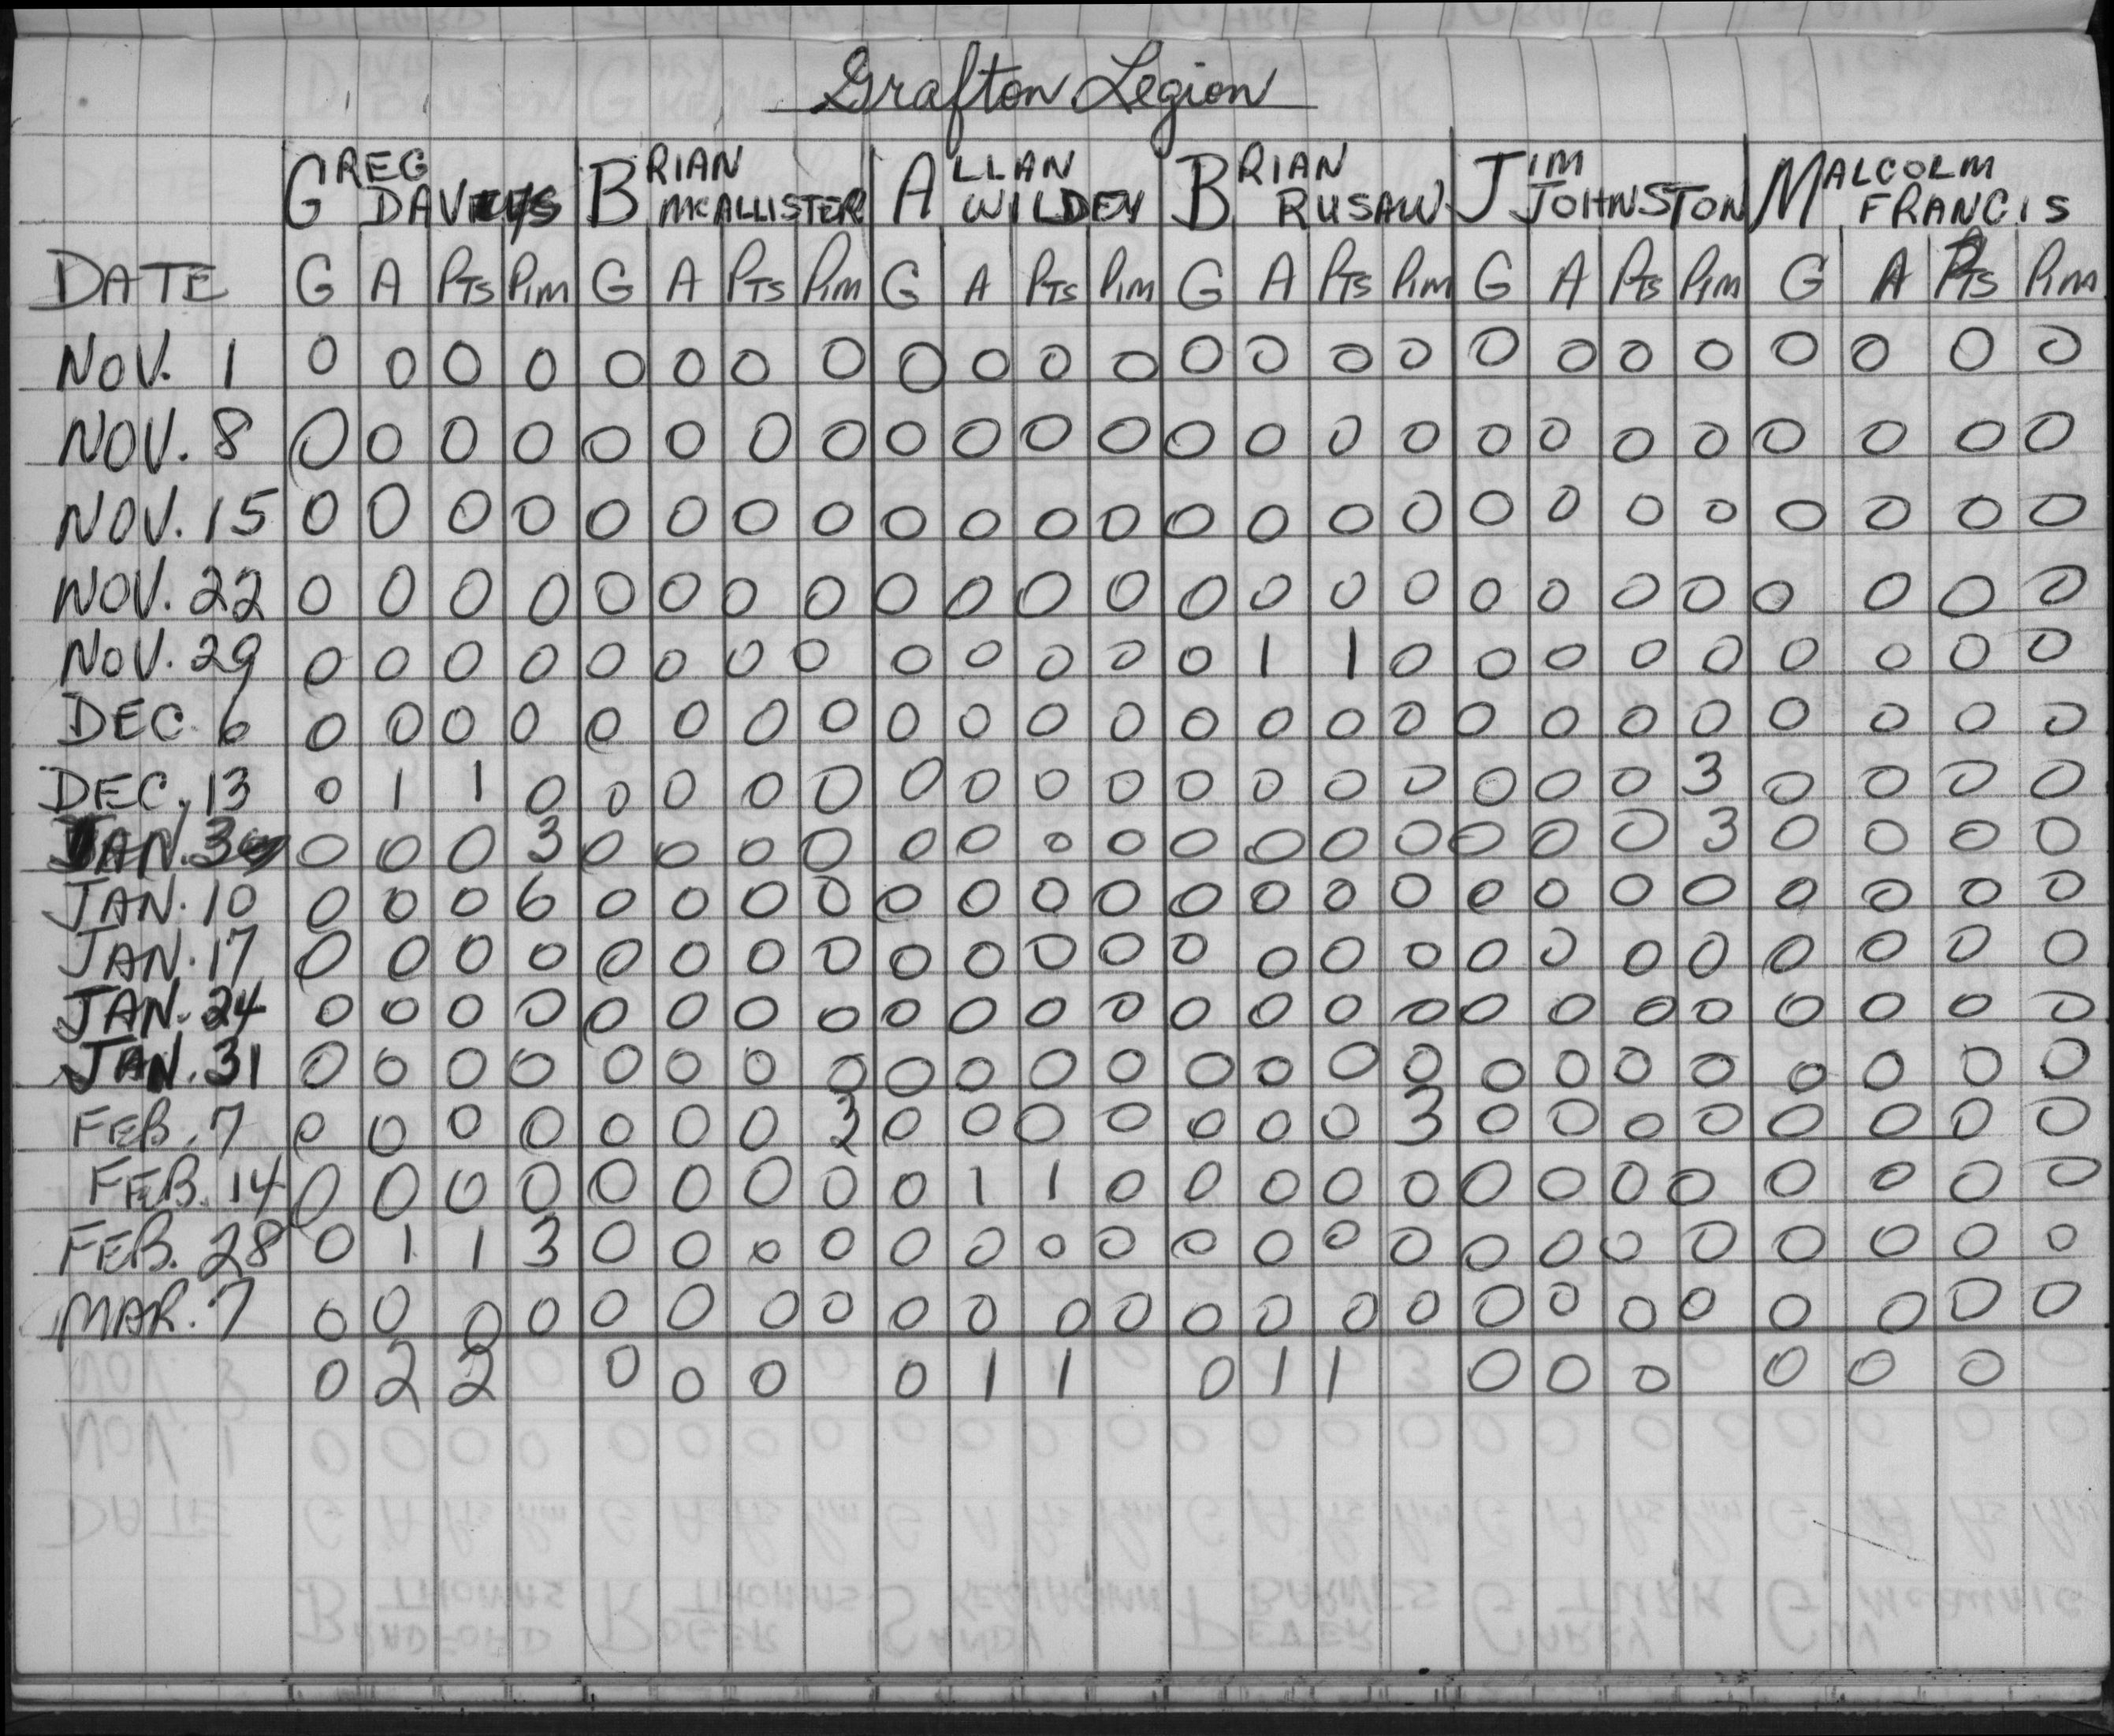 Grafton Legion
GREG DAVEYS BRIAN MCALLISTER ALLAN WILDEY BRIAN RUSAW JIM JOHNSTON MALCOLM FRANCIS
DATE G A PTS PIM G A PTS PIM G A PTS PIM G A PTS PIM G A PTS PIM G A PTS PIM
NOV. 1 0 0 0 0 0 0 0 0 0 0 0 0 0 0 0 0 0 0 0 0 0 0 0 0
NOV. 8 0 0 0 0 0 0 0 0 0 0 0 0 0 0 0 0 0 0 0 0 0 0 0 0
NOV. 15 0 0 0 0 0 0 0 0 0 0 0 0 0 0 0 0 0 0 0 0 0 0 0 0
NOV. 22 0 0 0 0 0 0 0 0 0 0 0 0 0 0 0 0 0 0 0 0 0 0 0 0
NOV. 29 0 0 0 0 0 0 0 0 0 0 0 0 0 1 1 0 0 0 0 0 0 0 0 0
DEC. 6 0 0 0 0 0 0 0 0 0 0 0 0 0 0 0 0 0 0 0 0 0 0 0 0
DEC. 13 0 1 1 0 0 0 0 0 0 0 0 0 0 0 0 0 0 0 0 3 0 0 0 0
JAN. 3 0 0 0 3 0 0 0 0 0 0 0 0 0 0 0 0 0 0 0 3 0 0 0 0
JAN. 10 0 0 0 6 0 0 0 0 0 0 0 0 0 0 0 0 0 0 0 0 0 0 0 0
JAN. 17 0 0 0 0 0 0 0 0 0 0 0 0 0 0 0 0 0 0 0 0 0 0 0 0
JAN. 24 0 0 0 0 0 0 0 0 0 0 0 0 0 0 0 0 0 0 0 0 0 0 0 0
JAN. 31 0 0 0 0 0 0 0 0 0 0 0 0 0 0 0 0 0 0 0 0 0 0 0 0
FEB. 7 0 0 0 0 0 0 0 3 0 0 0 0 0 0 0 3 0 0 0 0 0 0 0 0
FEB. 14 0 0 0 0 0 0 0 0 0 1 1 0 0 0 0 0 0 0 0 0 0 0 0 0
FEB. 28 0 1 1 3 0 0 0 0 0 0 0 0 0 0 0 0 0 0 0 0 0 0 0 0
MAR. 7 0 0 0 0 0 0 0 0 0 0 0 0 0 0 0 0 0 0 0 0 0 0 0 0
0 2 2 0 0 0 0 1 1 0 1 1 0 0 0 0 0 0